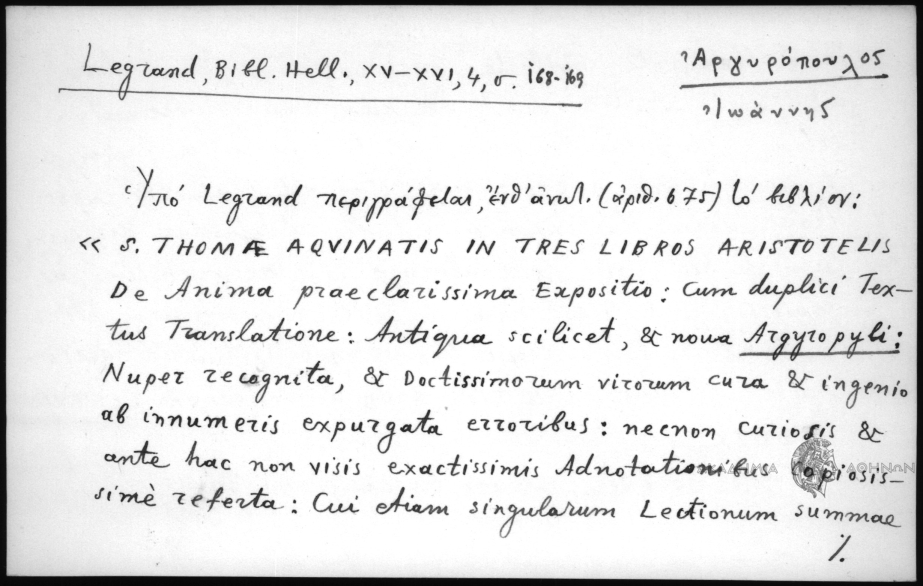 Legrand, Bibl. Hell., XV–XVI, 4, σ. 168-169
Ἀργυρόπουλος
Ἰωάννης
Ὑπό Legrand περιγράφεται, ἐνθ' ἀνωτ. (ἀριθ. 675) τό βιβλίον:
« S. THOMÆ AQVINATIS IN TRES LIBROS ARISTOTELIS
De Anima praeclarissima Expositio: Cum duplici Tex–
tus Translatione: Antiqua scilicet, & noua Argyropyli:
Nuper recognita, & Doctissimorum virorum cura & ingenio
ab innumeris expurgata erroribus: necnon curiosis &
ante hac non visis exactissimis Adnotationibus copiosis–
simè referta: Cui etiam singularum Lectionum summae
ΑΘΗΝΩΝ
%.